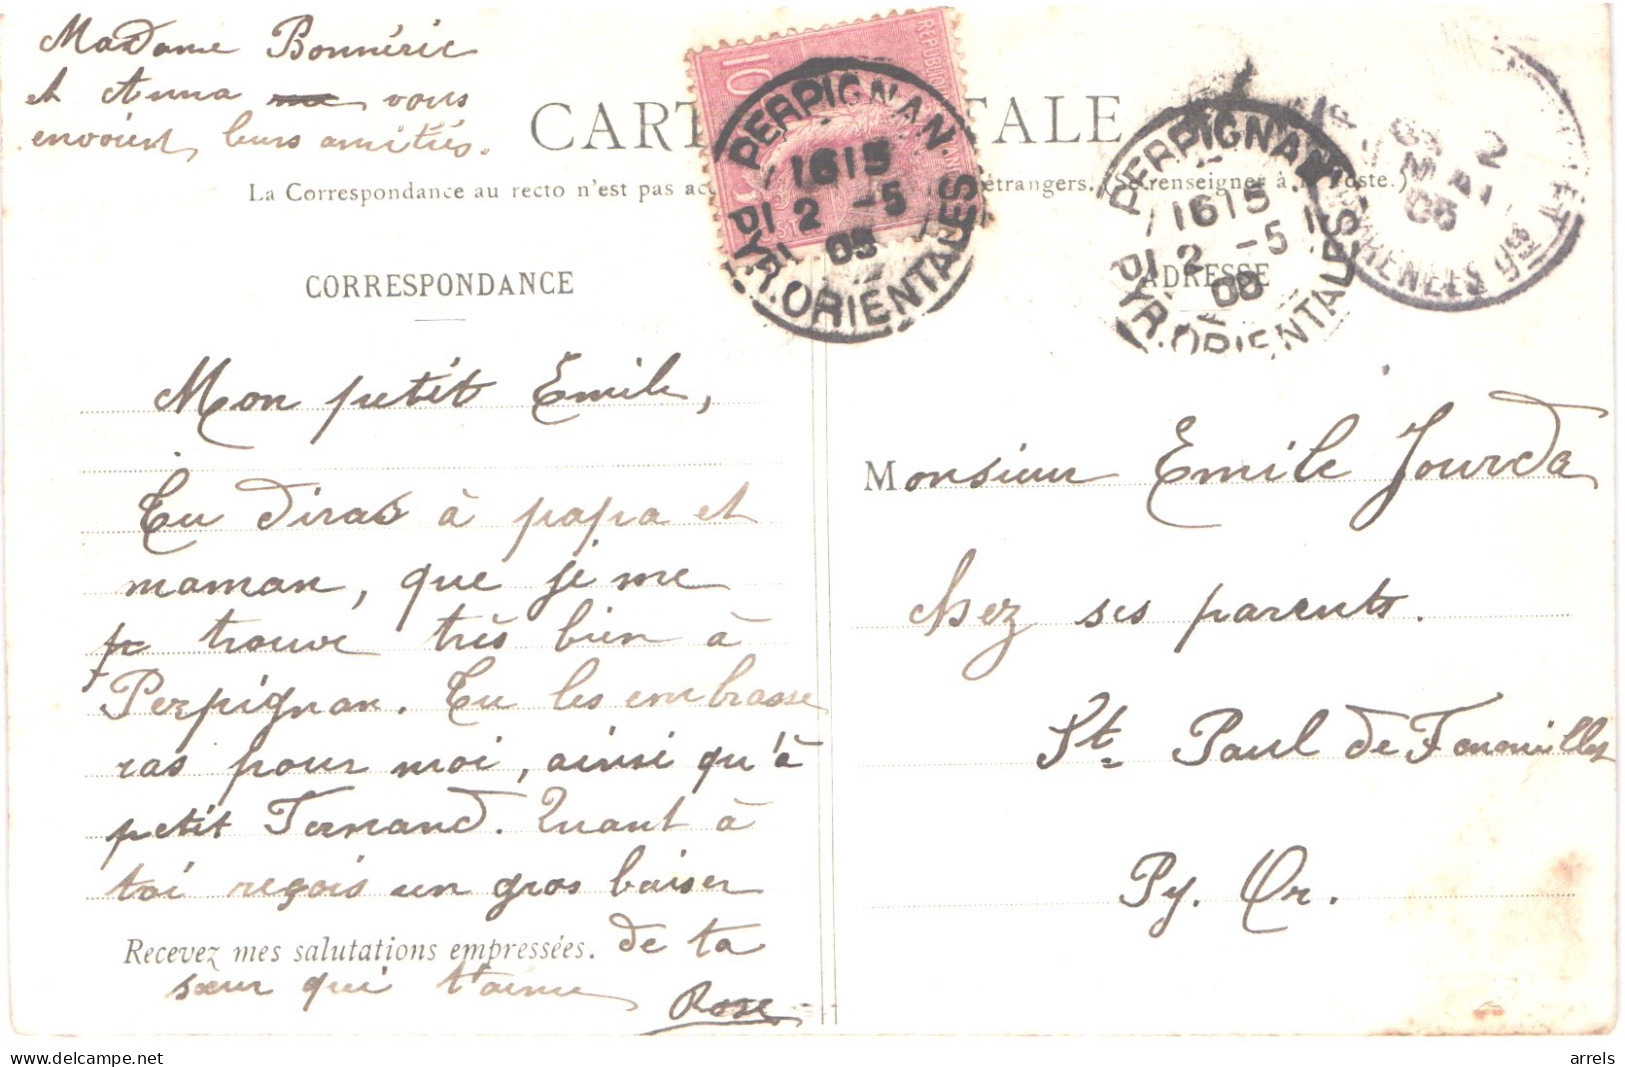 Madame Bonnéric
et Anna vous
envoient leurs amitiés.
RÉPUBLIQUE
10
PERPIGNAN
1615
2 -5
05
PYR. ORIENTALES
PERPIGNAN
1615
2 -5
05
PYR. ORIENTALES
2
05
PYRENEES Oles
CARTE POSTALE
La Correspondance au recto n'est pas ac étrangers. (Se renseigner à la Poste.)
CORRESPONDANCE
ADRESSE
Mon petit Emile,
Tu diras à papa et
maman, que je me
trouve très bien à
Perpignan. Tu les embrasse
ras pour moi, ainsi qu'à
petit Fernand. Quant à
toi reçois un gros baiser
Recevez mes salutations empressées. de ta
sœur qui t'aime
Rose
Monsieur Emile Jourda
chez ses parents.
St Paul de Fenouillet
Py. Or.
www.delcampe.net
arrels